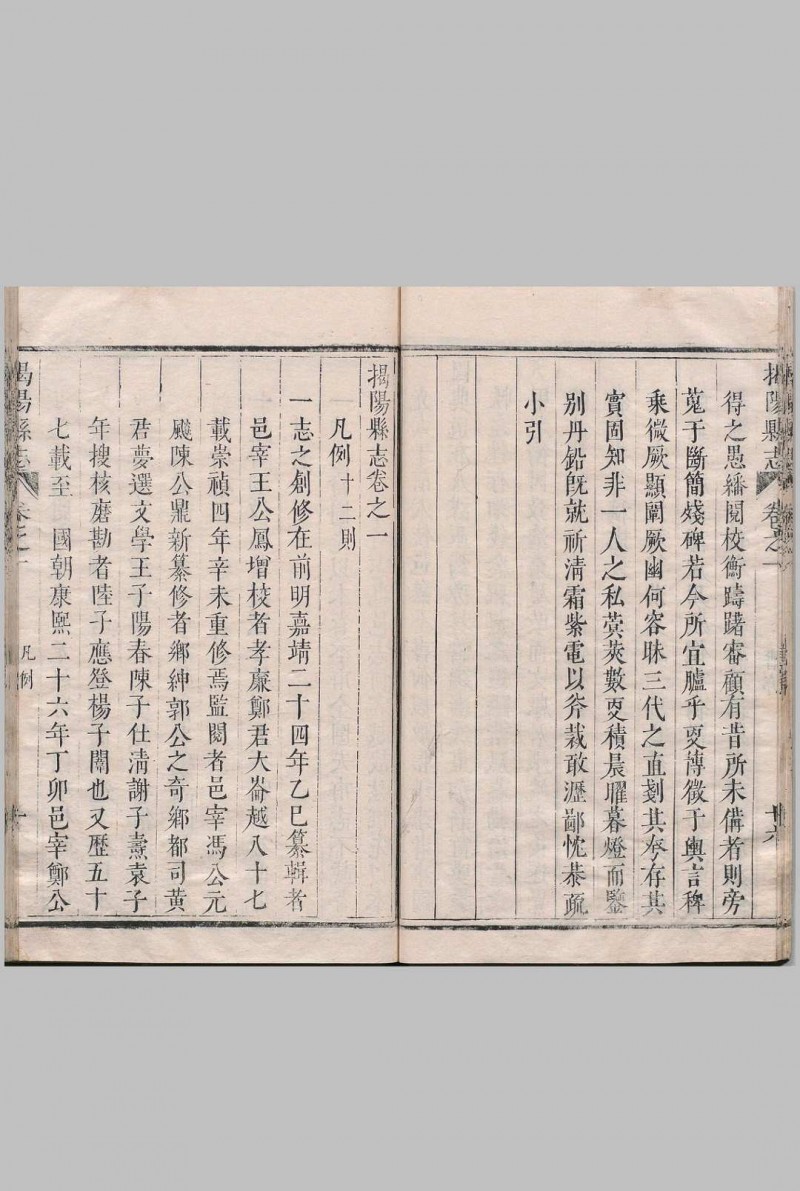 揭陽縣志
卷之一
十六
得之愚繙閱校衡躊躇審顧有昔所未備者則旁
蒐于斷簡殘碑若今所宜臚乎更博徵于輿言稗
乘微厥顯闡厥幽何容昧三代之直剗其夸存其
實固知非一人之私蓂莢數更積晨曜暮燈而鑒
別丹鉛旣就祈淸霜紫電以斧裁敢瀝鄙忱恭疏
小引
揭陽縣志卷之一
凡例十二則
一志之創修在前明嘉靖二十四年乙巳纂輯者
邑宰王公鳳增校者孝廉鄭君大崙越八十七
載崇禎四年辛未重修焉監閱者邑宰馮公元
飈陳公鼎新纂修者鄉紳郭公之奇鄉都司黃
君夢選文學王子陽春陳子仕淸謝子燾袁子
年搜核磨勘者陸子應登楊子闈也又歷五十
七載至　國朝康熙二十六年丁卯邑宰鄭公
揭陽縣志
卷之一
凡例
一